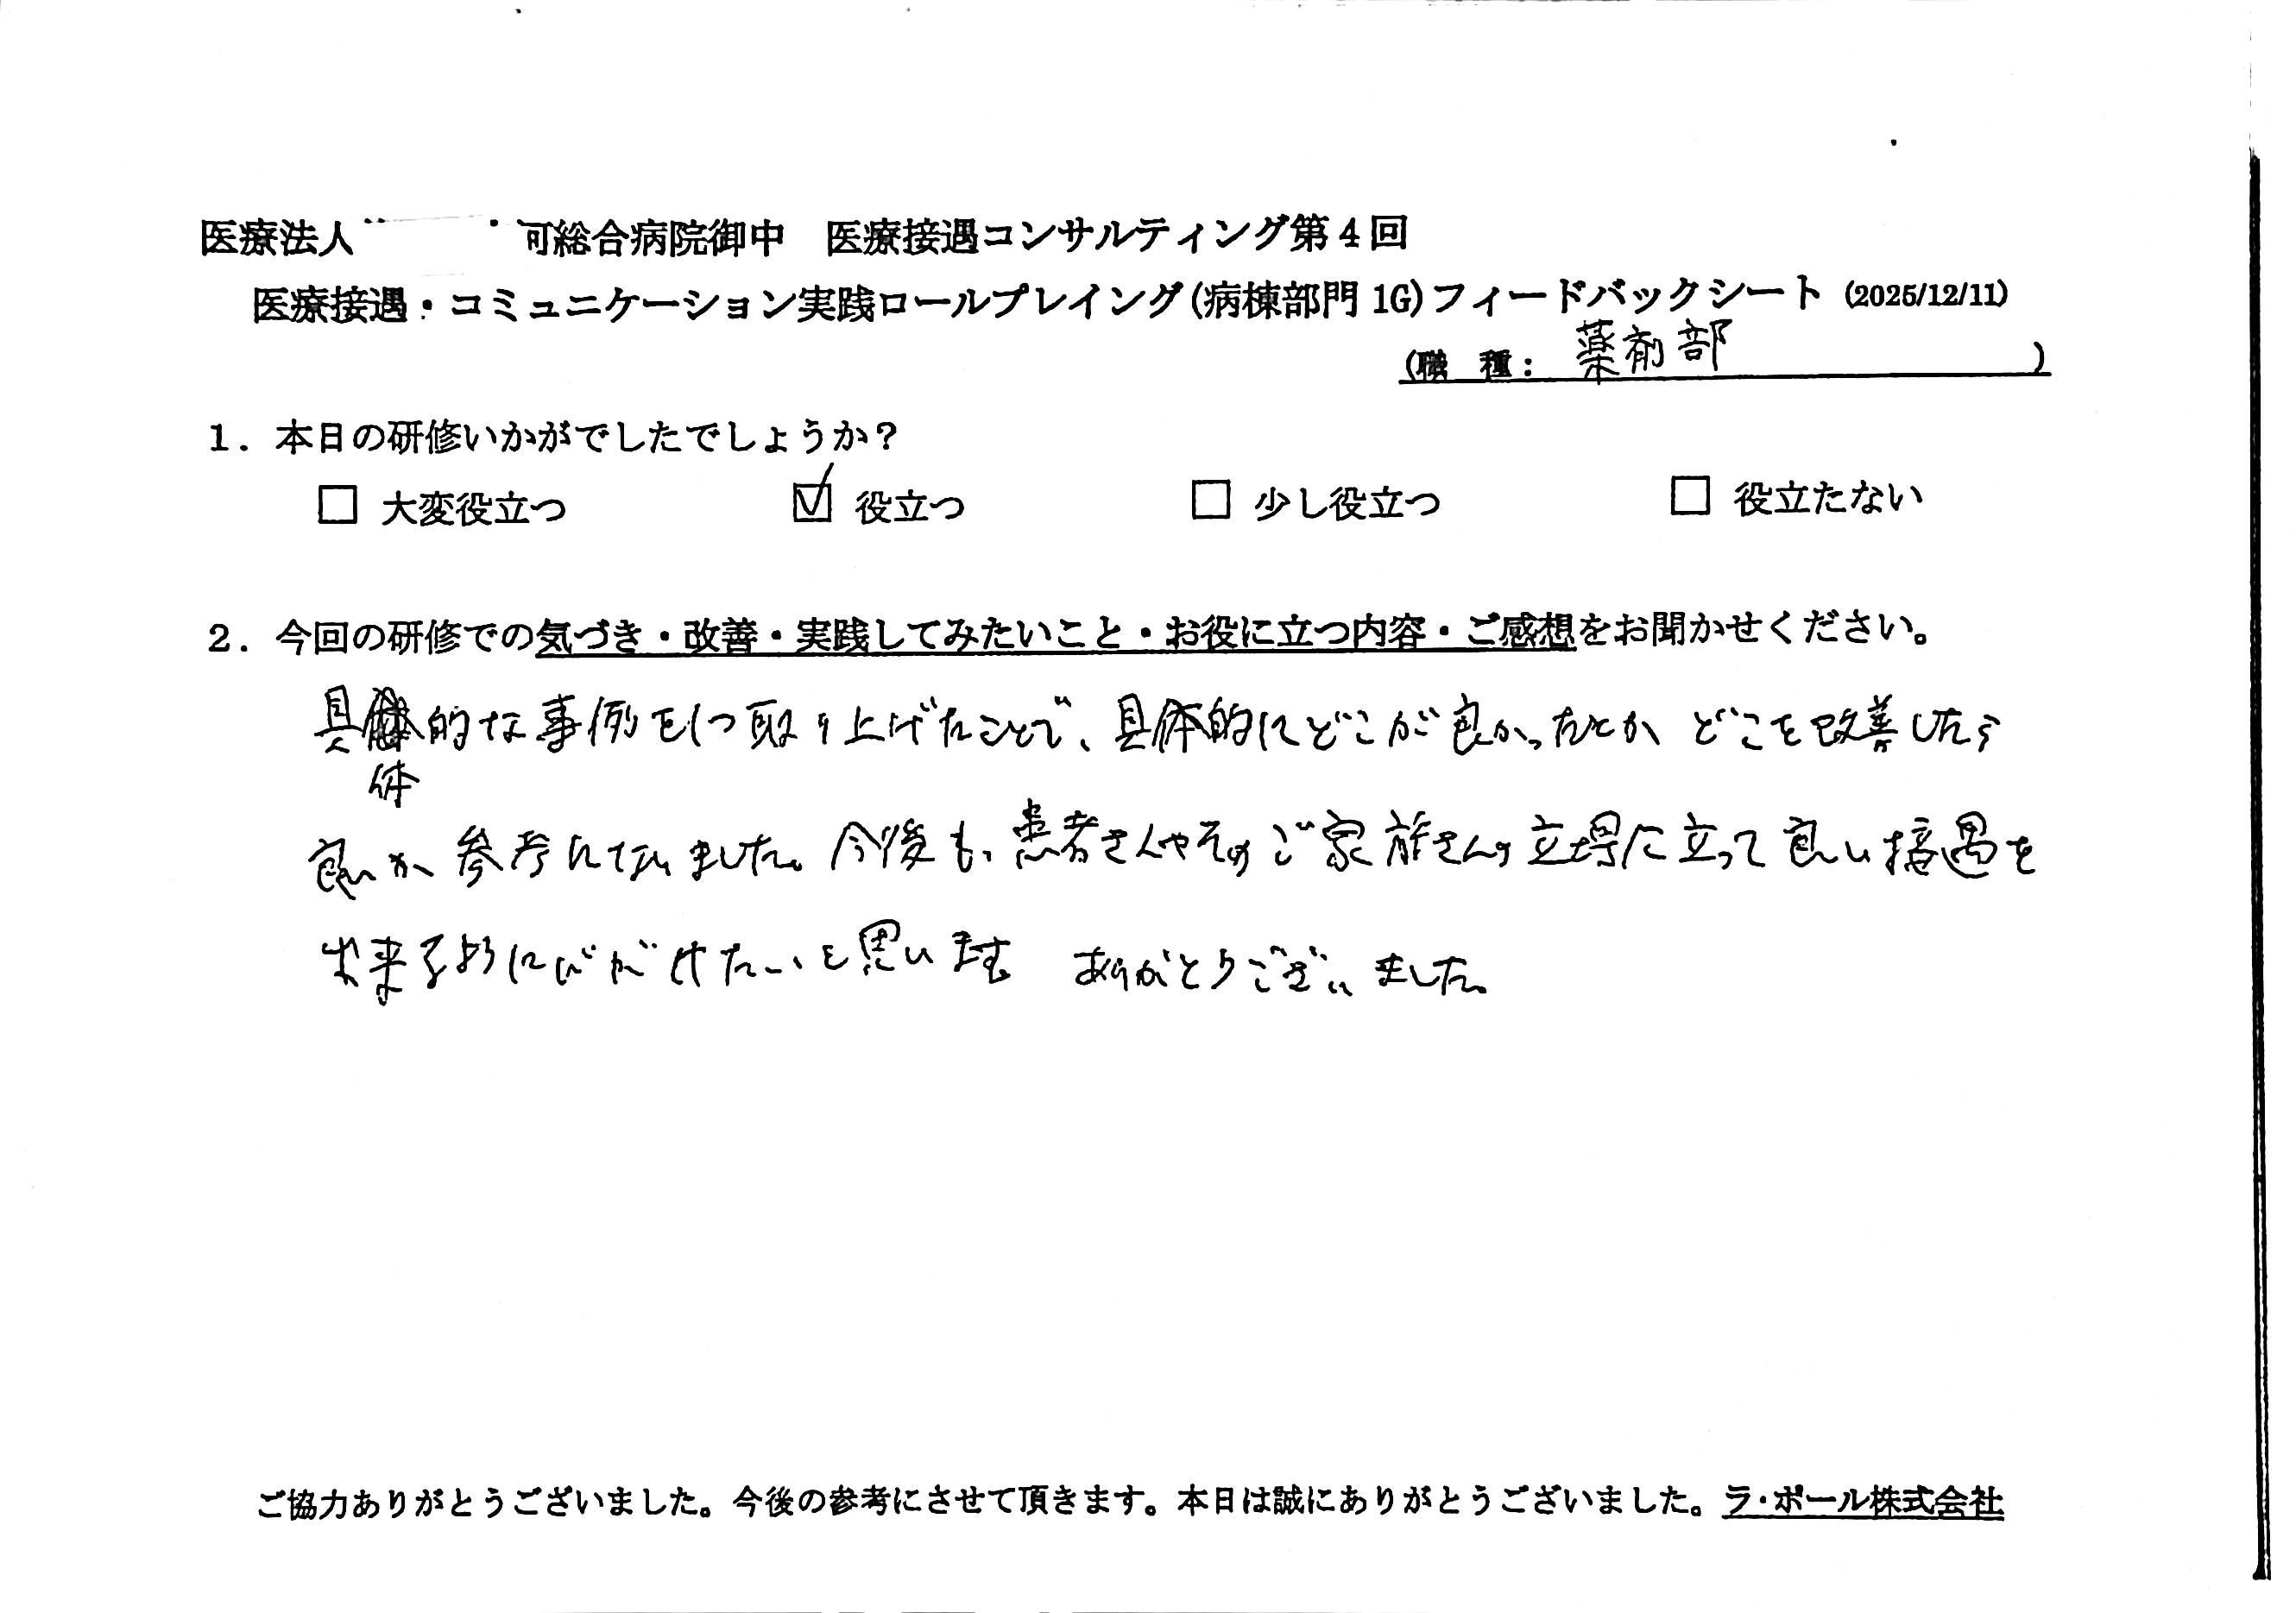 医療法人 可総合病院御中 医療接遇コンサルティング第4回
医療接遇・コミュニケーション実践ロールプレイング(病棟部門1G)フィードバックシート (2025/12/11)
(職 種: 薬剤部 )
1. 本日の研修いかがでしたでしょうか?
□ 大変役立つ ☑ 役立つ □ 少し役立つ □ 役立たない
2. 今回の研修での気づき・改善・実践してみたいこと・お役に立つ内容・ご感想をお聞かせください。
具体的な事例を1つ取り上げたことで、具体的にどこが良かったとか どこを改善したら
良いか 参考になりました。今後も、患者さんやそのご家族さんの立場に立って良い接遇を
出来るように心がけたいと思います ありがとうございました。
ご協力ありがとうございました。今後の参考にさせて頂きます。本日は誠にありがとうございました。ラ・ポール株式会社